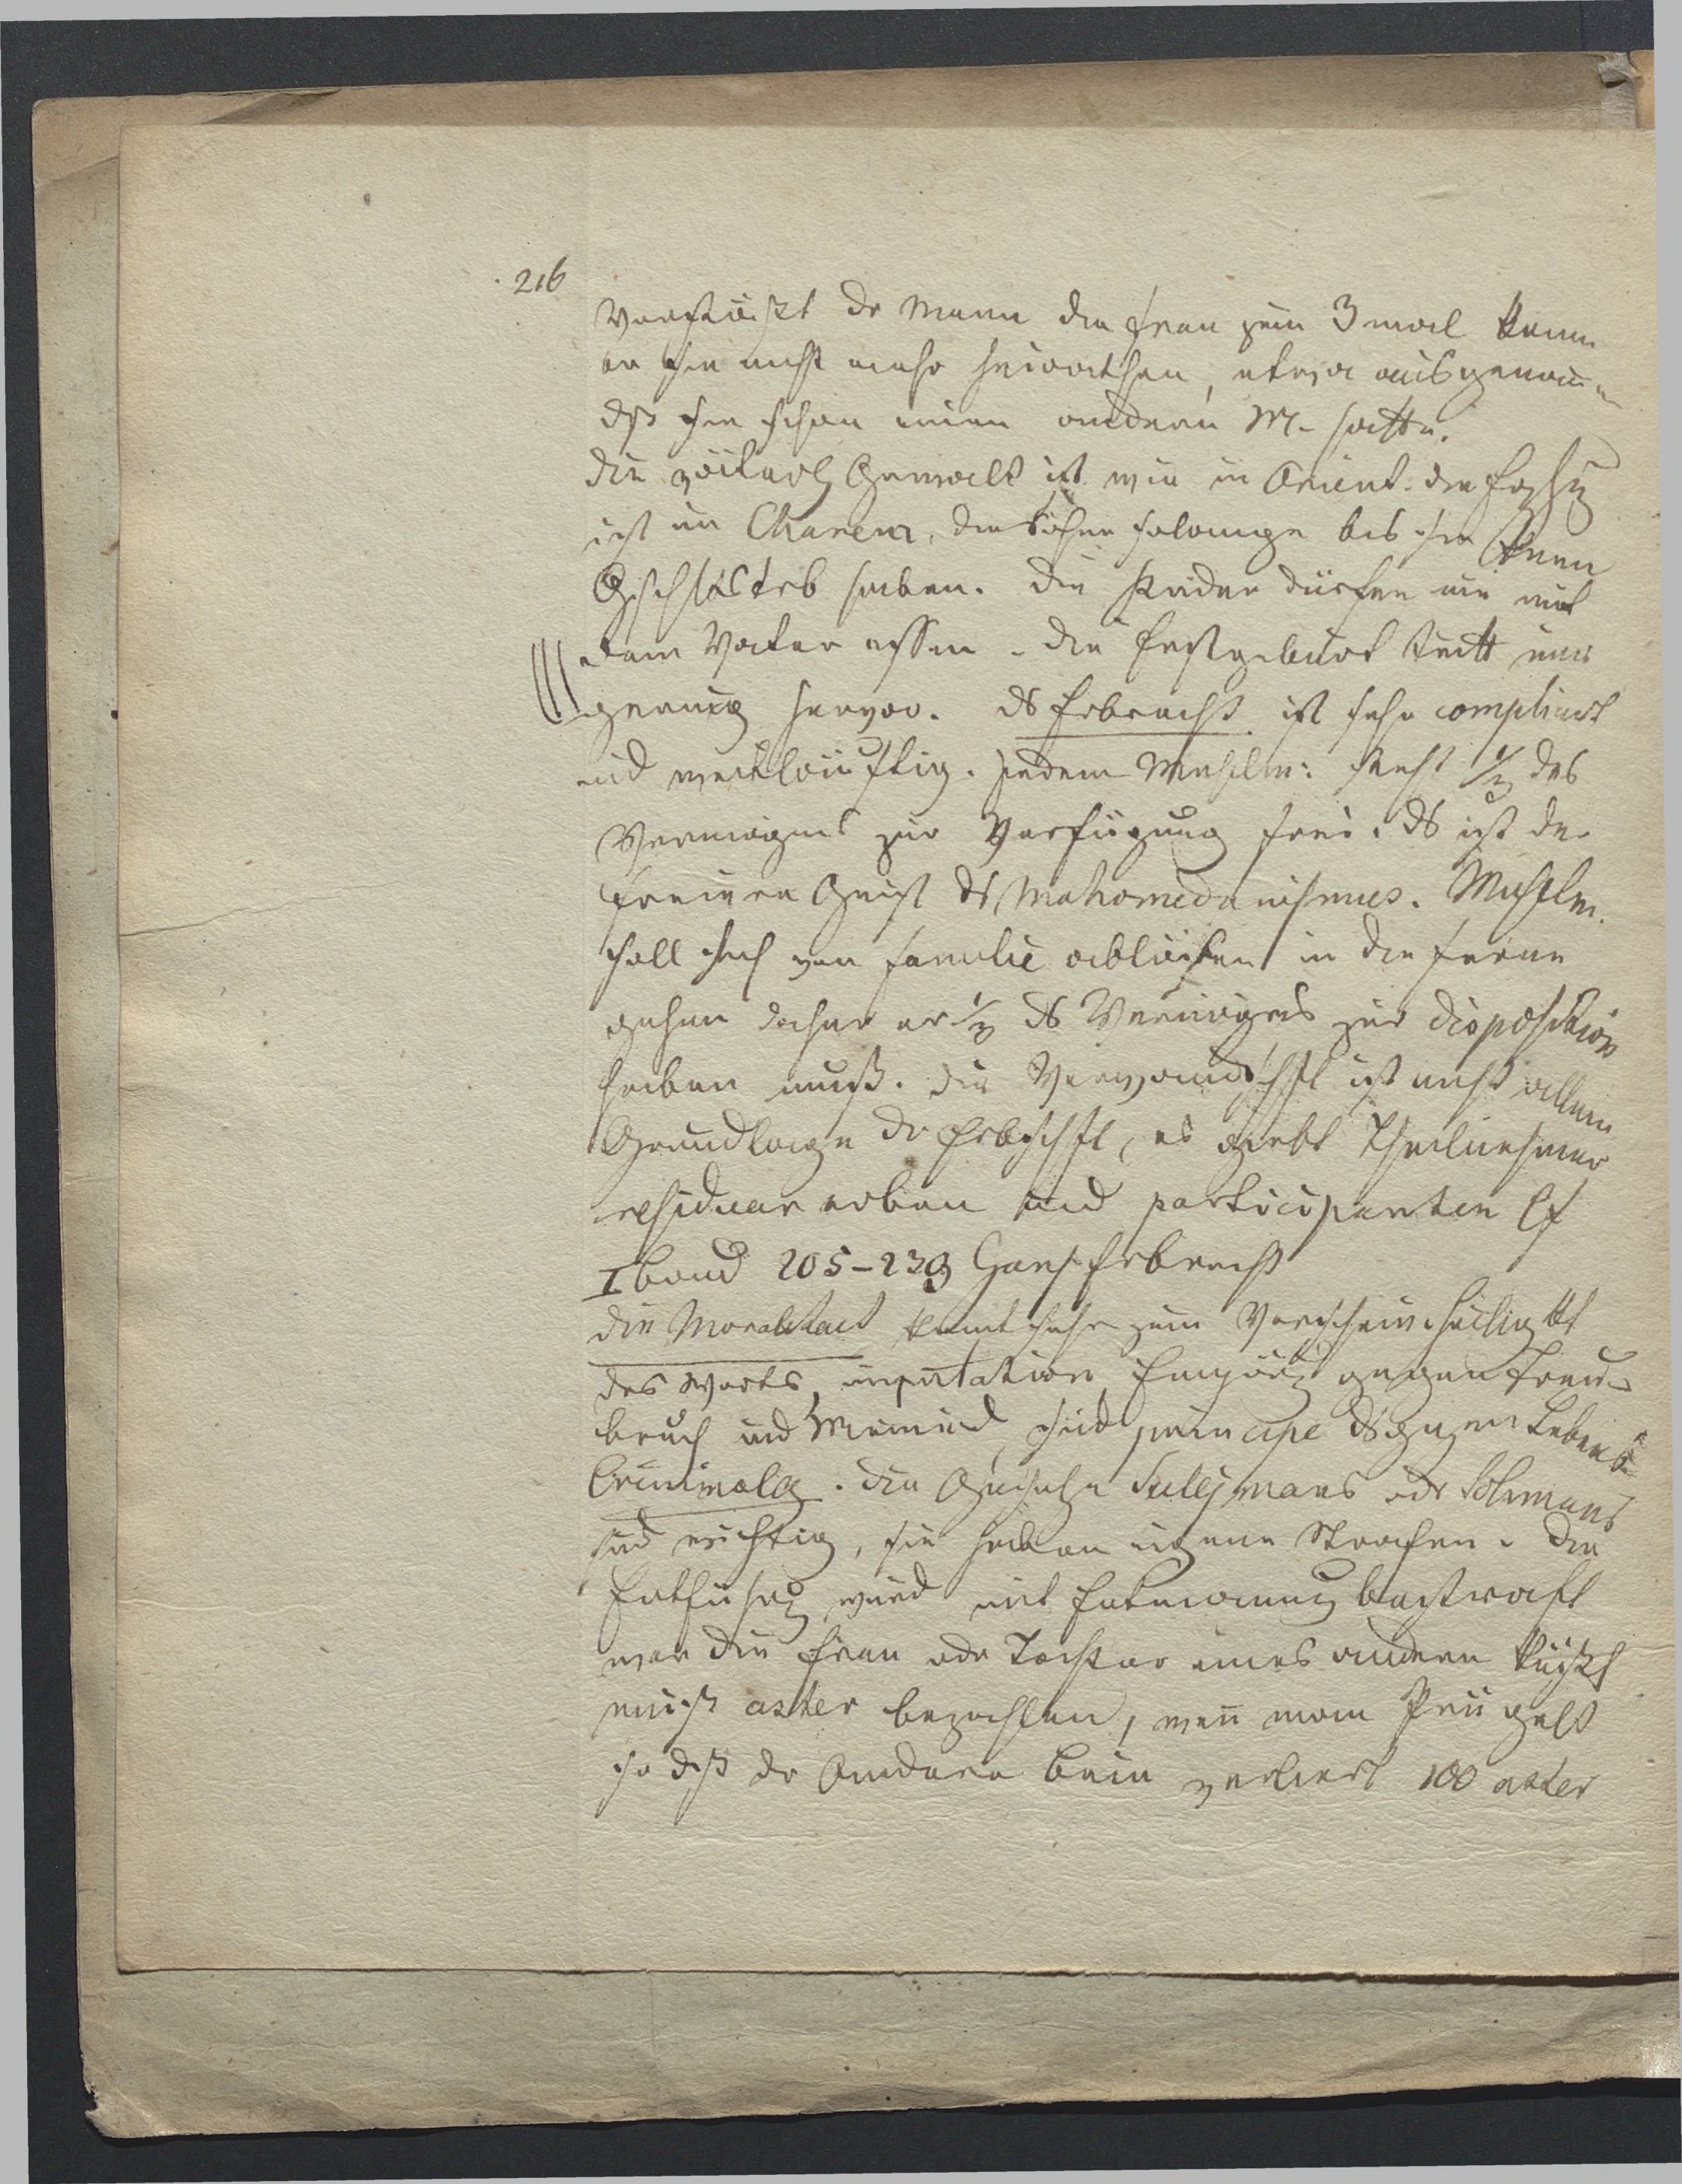 216
Verstößt dr Mann die Frau zum 3 mal kann
er sie nicht mehr heirathen, etwa ausgenom̄en
dß sie schon einen andern M. hatte.
die väterl Gewalt ist wie in Orient. die
ist im Charem, die Söhne solange bis sie
haben. die Kinder dürfen nie mit
dem Vater essen. die Erstgeburt tritt nur
gering hervor. ds Erbrecht ist sehr complicirt
und weitläuftig. jedem Muselm: steht 1/3 des
Vermögens zur Verfügung frei. ds ist der
freiere Geist ds Mahomedanismus. Muselm.
soll sich von familie ablösen in die ferne
gehen daher er 1/3 ds Vermögens zur disposition
haben muß. die Verwandtschft ist nicht allein
Grundlage dr Erbschft, es giebt Theilnehmer
residuar erben und participanten cf
I band 205-239 Gans Erbrecht
die Moralitaet komt sehr zum Vorschein Heiligktt
des Worts, imputation Empörg gegen Treu-
bruch und Meineid sind principe ds ganzen Lebens
Criminalg. die Gesetze Sulejmans odr Solimans
sind wichtig, sie haben eigene Strafen. die
Entführg wird mit Entmannung bestraft
wer die Frau odr Tochter eines andern küßt
muß asker bezahlen, wen̄ man Prügelt
so dß dr Andere Bein verliert 100 asker